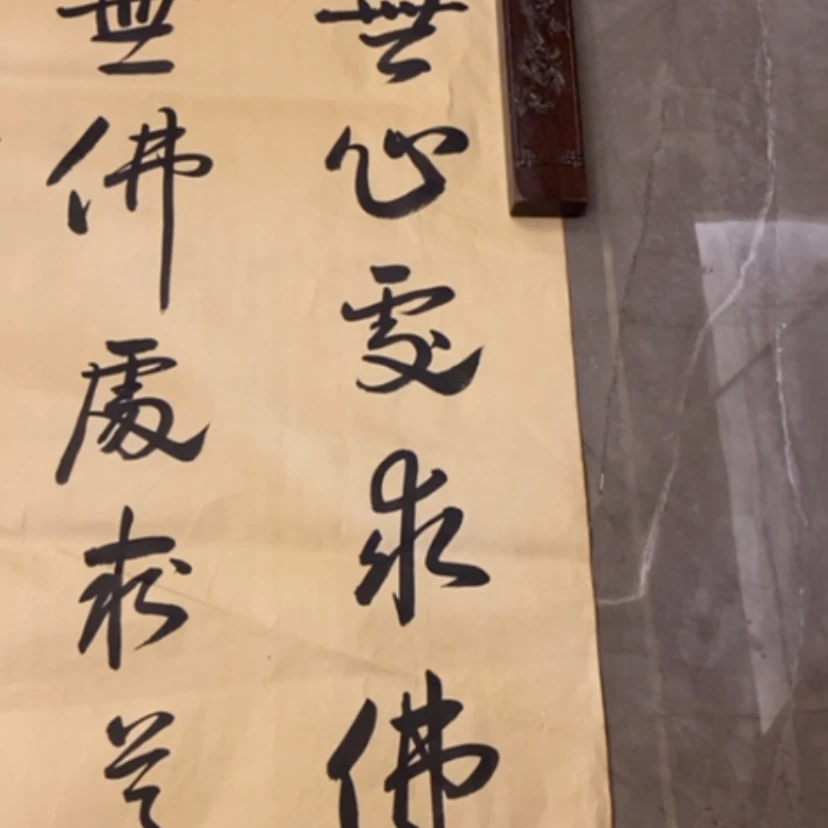 無心處求佛
無佛處求